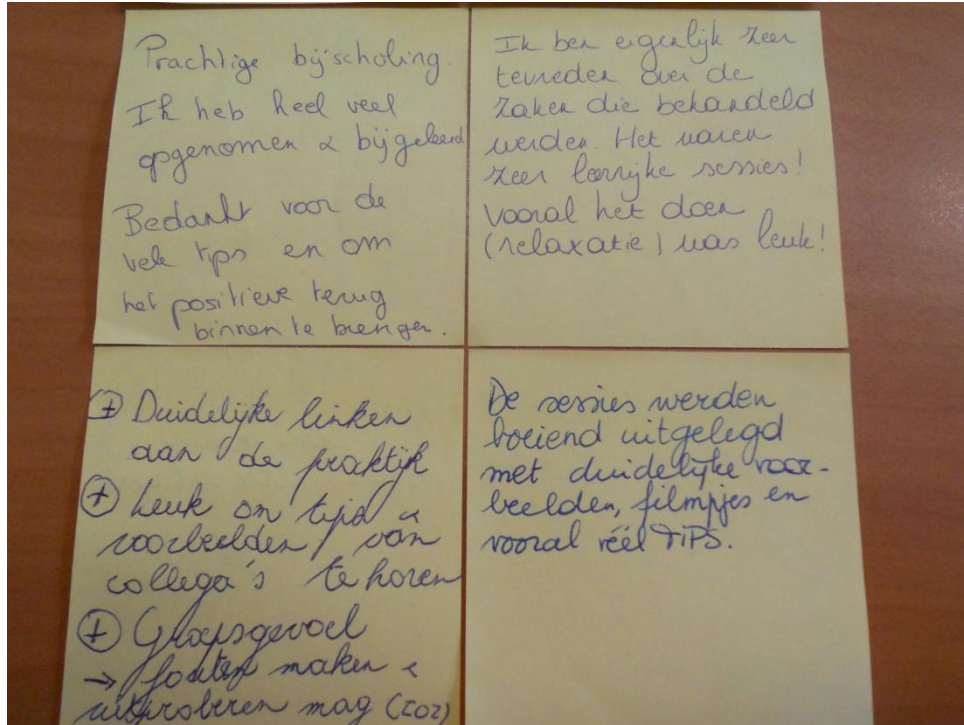 Prachtige bijscholing.
Ik heb heel veel
opgenomen & bijgeleerd
Bedankt voor de
vele tips en om
het positieve terug
binnen te brengen.
Ik ben eigenlijk zeer
tevreden over de
zaken die behandeld
werden. Het waren
zeer leerrijke sessies!
Vooral het doen
(relaxatie) was leuk!
+ Duidelijke linken
aan de praktijk
+ Leuk om tips &
voorbeelden van
collega's te horen
+ Groepsgevoel
→ fouten maken &
uitproberen mag
De sessies werden
boeiend uitgelegd
met duidelijke voor-
beelden, filmpjes en
vooral véél TIPS.